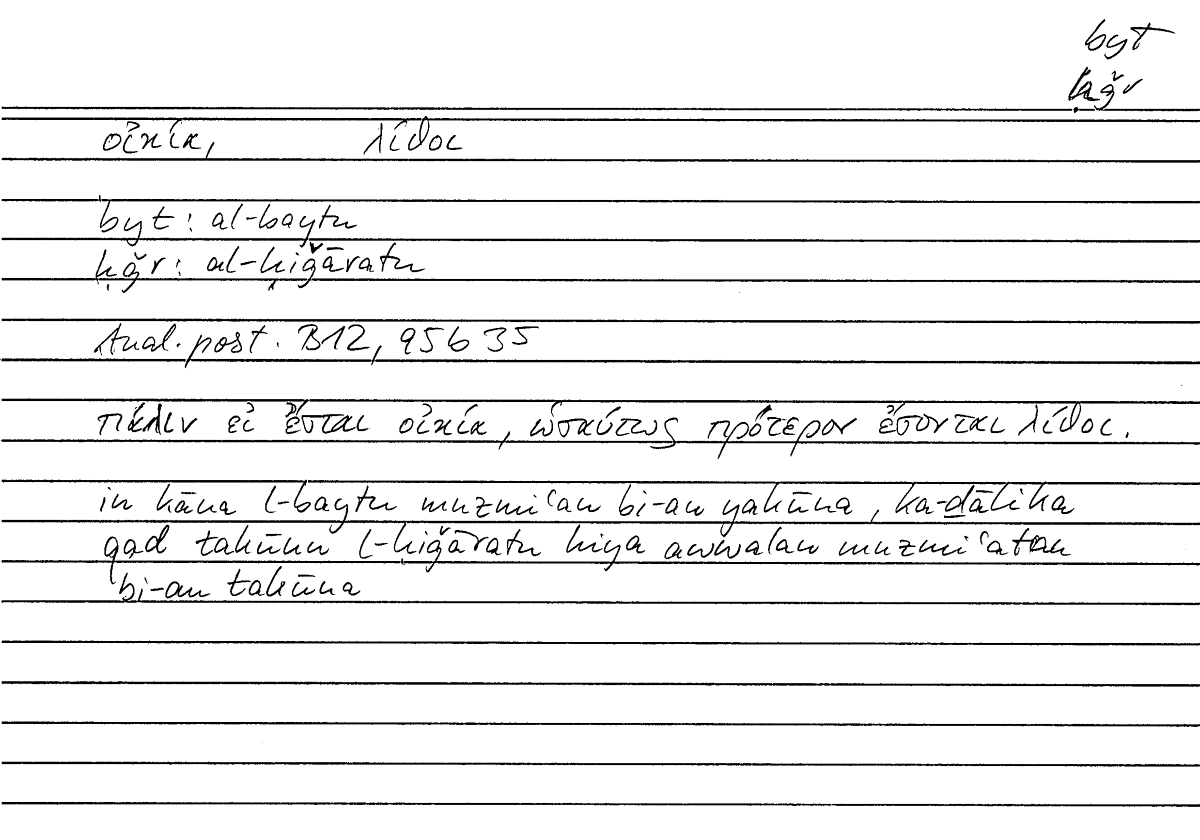 byt
ḥǧr
οἰκία, λίθοι
byt: al-baytu
ḥǧr: al-ḥiǧāratu
Anal. post. B12, 95b35
πάλιν εἰ ἔσται οἰκία, ὡσαύτως πρότερον ἔσονται λίθοι.
in kāna l-baytu muzmiʿan bi-an yakūna, ka-ḏālika
qad takūnu l-ḥiǧāratu hiya awwalan muzmiʿatan
bi-an takūna